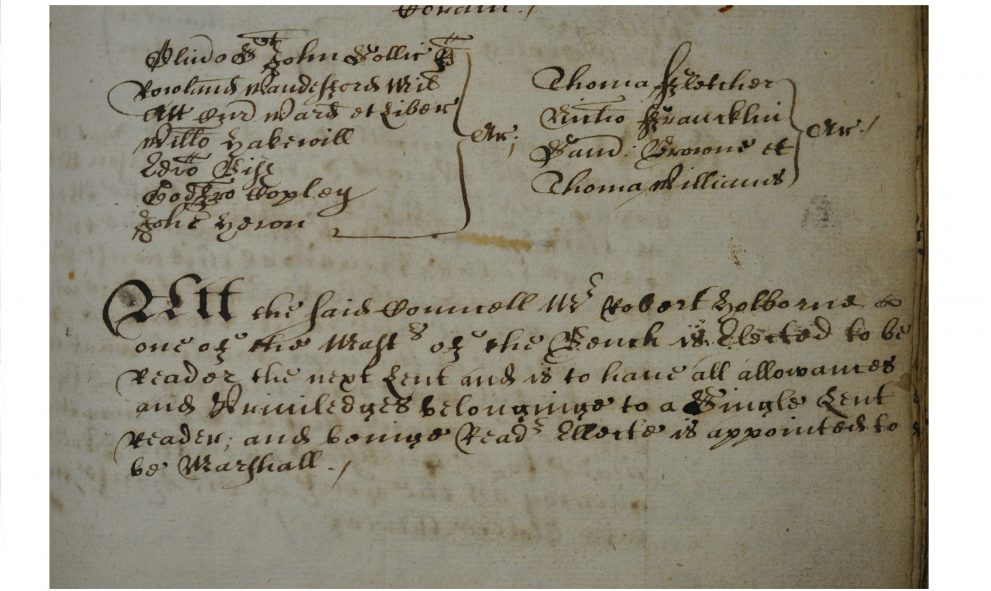 Coram./
Olivero St John Sollic R
Rowland Wandesford Mil
Att Cur Ward et Liber
Willo Hakewill
Edro Bish
Godfro Copley
Johe Heron
Ar;
Thoma Fletcher
Nicho Francklin
Saml: Browne et
Thoma Williams
Ar./
Att the said Councell Mr Robert Holborne
one of the Mastrs of the Bench is Elected to be
Reader the next Lent and is to have all allowances
and Priviledges belonginge to a Single Lent
Reader; and beinge Readr Electe is appointed to
be Marshall./